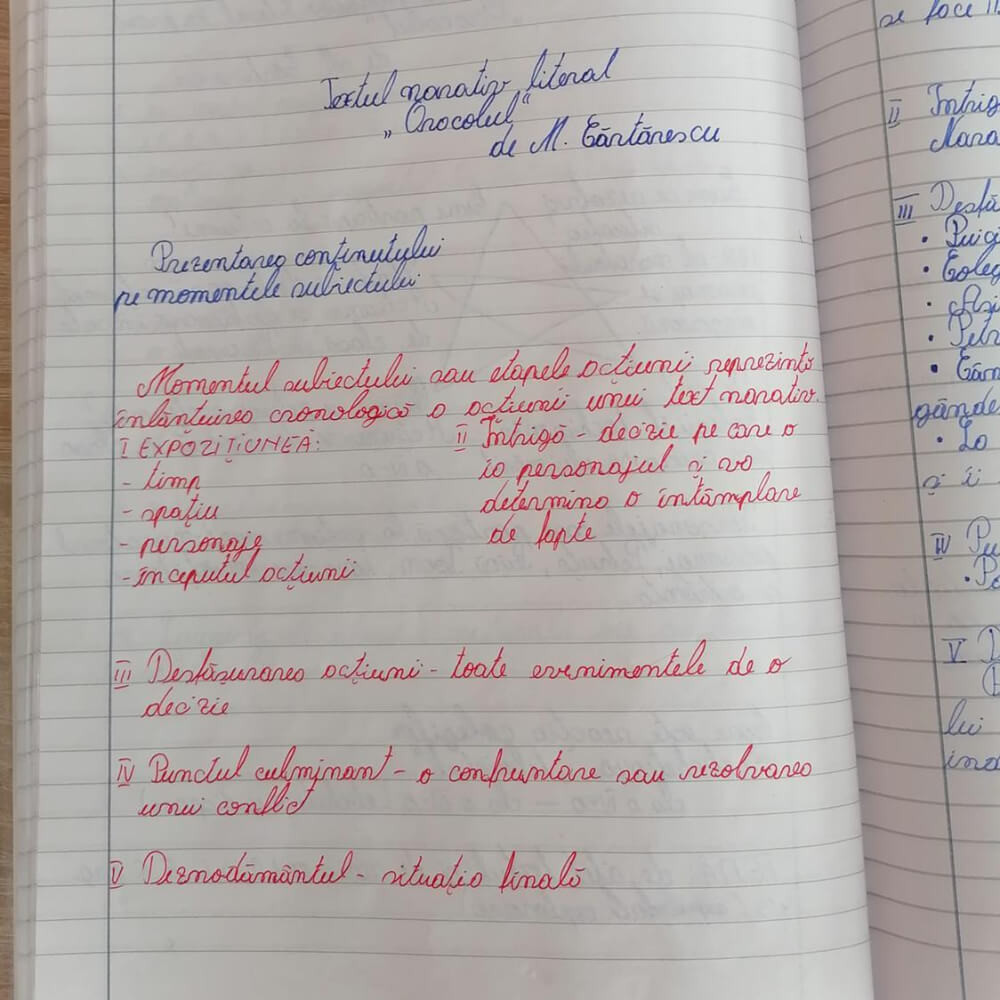 Textul narativ literal
„Oracolul"
de M. Cărtărescu
Prezentarea conținutului
pe momentele subiectului
Momentul subiectului sau etapele acțiunii reprezintă
înlănțuirea cronologică a acțiunii unui text narativ.
I EXPOZIȚIUNEA:
- timp
- spațiu
- personaje
- începutul acțiunii
II Intrigă - decizie pe care o
ia personajul și va
determina o întâmplare
de fapte
III Desfășurarea acțiunii - toate evenimentele de o
decizie
IV Punctul culminant - o confruntare sau rezolvarea
unui conflict
V Deznodământul - situația finală
se face
II Intrig
Nara
III Desfă
• Puig
• Coleg
• Petr
gânde
• La
și î
IV Pu
V D
lui